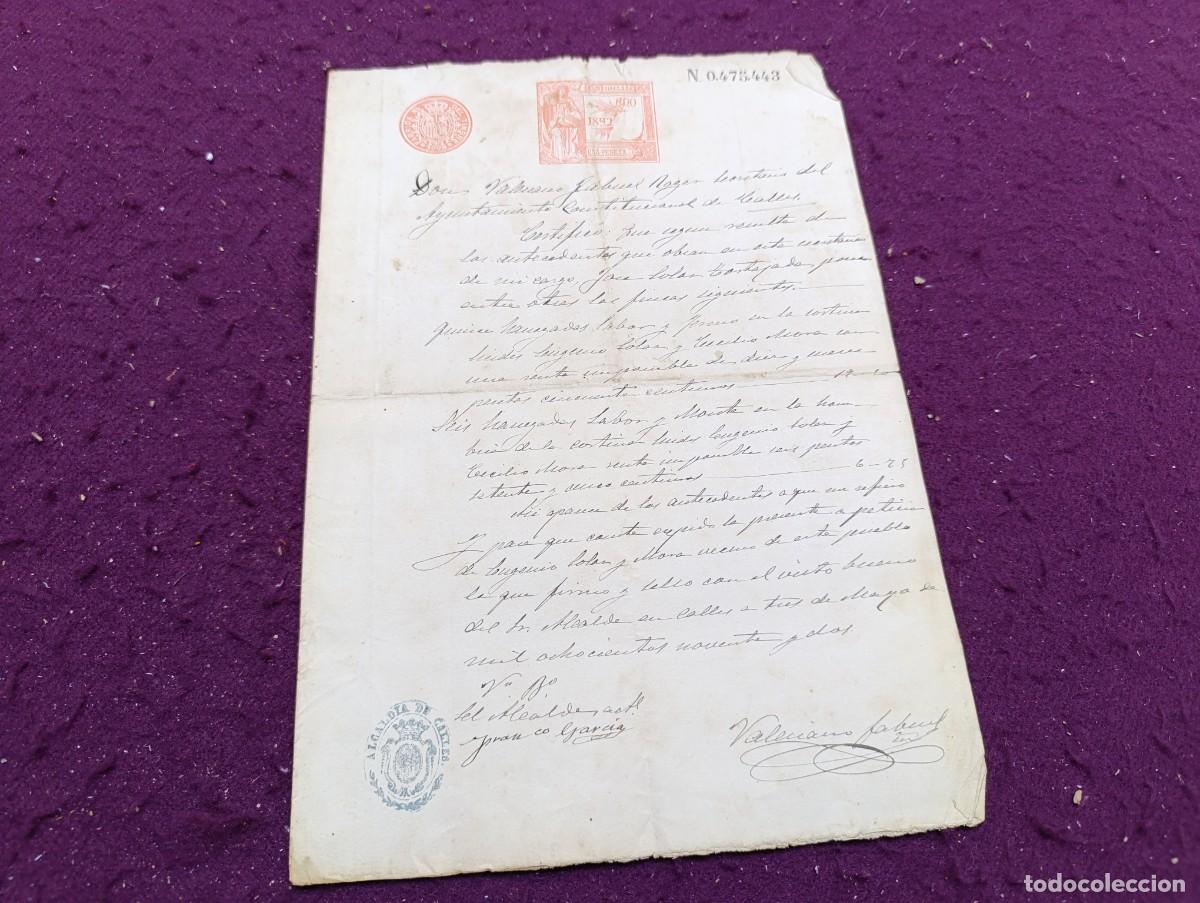 N 0.475.443
1892
Don Valeriano Jabuel Roger Secretario del
Ayuntamiento Constitucional de Calles.
Certifico: Que segun resulta de
los antecedentes que obran en esta secretaria
de mi cargo, Jose Solaz Cortajada, posee
entre otras las fincas siguientes.
Quince hanegadas labor y en la cortina
lindes Eugenio Solaz y Cecilio Mora con
una renta imponible de diez y nueve
pesetas cincuenta centimos
Seis hanegadas labor y Monte en la
de la cortina lindes Eugenio Solaz y
Cecilio Mora renta imponible seis pesetas
setenta y cinco centimos 6-75
Asi aparece de los antecedentes a que me refiero
Y para que conste expido la presente a peticion
de Eugenio Solaz y Mora vecino de este pueblo
la que firmo y sello con el visto bueno
del Sr. Alcalde en Calles a tres de Mayo de
mil ochocientos noventa y dos
Vº Bº
El Alcalde actl
Franco Garcia
Valeriano Jabuel
ALCALDÍA DE CALLES.
todocoleccion